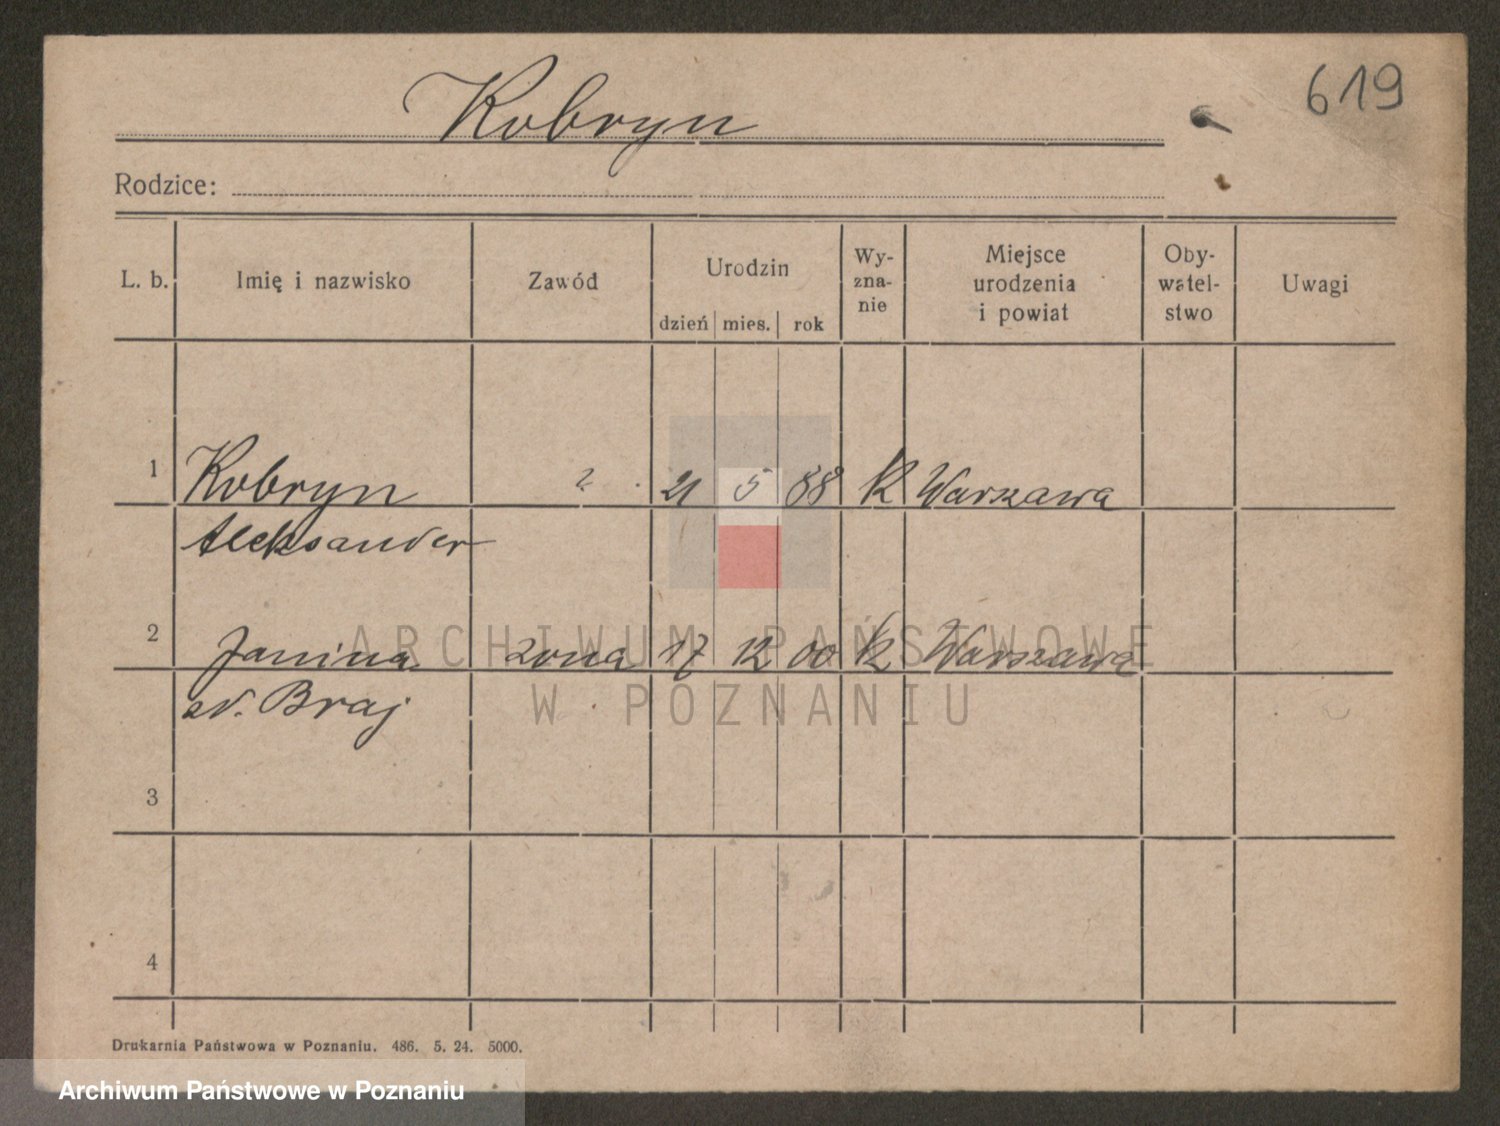 619
Kobryn
Rodzice:
L. b. Imię i nazwisko Zawód Urodzin dzień mies. rok Wy-zna-nie Miejsce urodzenia i powiat Oby-watel-stwo Uwagi
1 Kobryn ? 21 5 88 k Warszawa
Aleksander
2 Janina żona 17 12 00 k Warszawa
zd. Braj
3
4
ARCHIWUM PAŃSTWOWE
W POZNANIU
Drukarnia Państwowa w Poznaniu. 486. 5. 24. 5000.
Archiwum Państwowe w Poznaniu